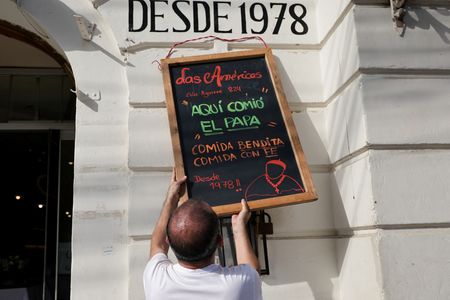 DESDE 1978
Las Américas
"AQUÍ COMIÓ
EL PAPA"
COMIDA BENDITA
COMIDA CON FE
Desde
1978!!